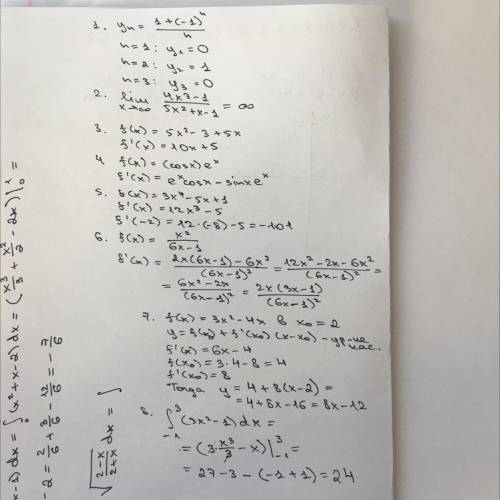 1. yₙ = (1+(-1)ⁿ)/n
n=1: y₁=0
n=2: y₂=1
n=3: y₃=0
2. lim x→∞ (4x³-1)/(5x²+x-1) = ∞
3. f(x) = 5x²-3+5x
f'(x)=10x+5
4. f(x) = (cosx)eˣ
f'(x) = eˣcosx - sinxeˣ
5. f(x) = 3x⁴-5x+1
f'(x)=12x³-5
f'(-2)=12·(-8)-5=-101
6. f(x) = x²/(6x-1)
f'(x) = (2x(6x-1)-6x²)/(6x-1)² = (12x²-2x-6x²)/(6x-1)² =
= (6x²-2x)/(6x-1)² = 2x(3x-1)/(6x-1)²
7. f(x) = 3x²-4x в x₀=2
y=f(x₀)+f'(x₀)(x-x₀) - ур-ие
кас.
f'(x)=6x-4
f(x₀)=3·4-8=4
f'(x₀)=8
Тогда y=4+8(x-2)=
=4+8x-16=8x-12
8. ∫₋₁³ (3x²-1)dx=
=(3·x³/3 - x)|₋₁³=
= 27-3-(-1+1)=24
x-2)dx = ∫₀¹(x²+x-2)dx = (x³/3 + x²/2 - 2x)|₀¹ =
-2 = 2/6 + 3/6 - 12/6 = -7/6
√((2-x)/(2+x)) dx = ∫